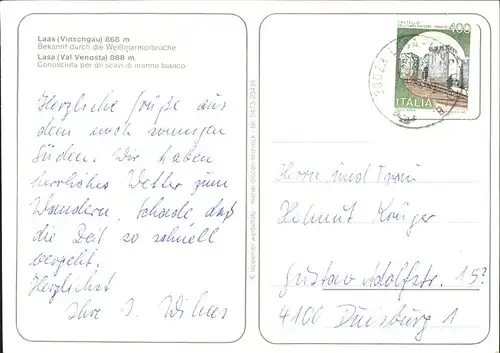 Laas (Vinschgau) 868 m
Bekannt durch die Weißmarmorbrüche
Lasa (Val Venosta) 868 m.
Conosciuta per gli scavi di marmo bianco
Herzliche Grüße aus
dem noch sonnigen
Süden. Wir haben
herrliches Wetter zum
Wandern. Schade daß
die Zeit so schnell
vergeht.
Herzlichst
Ihre
400
ITALIA
Herrn und Frau
Helmut Krüger
Gustav Adolfstr. 15?
4100 Duisburg 1